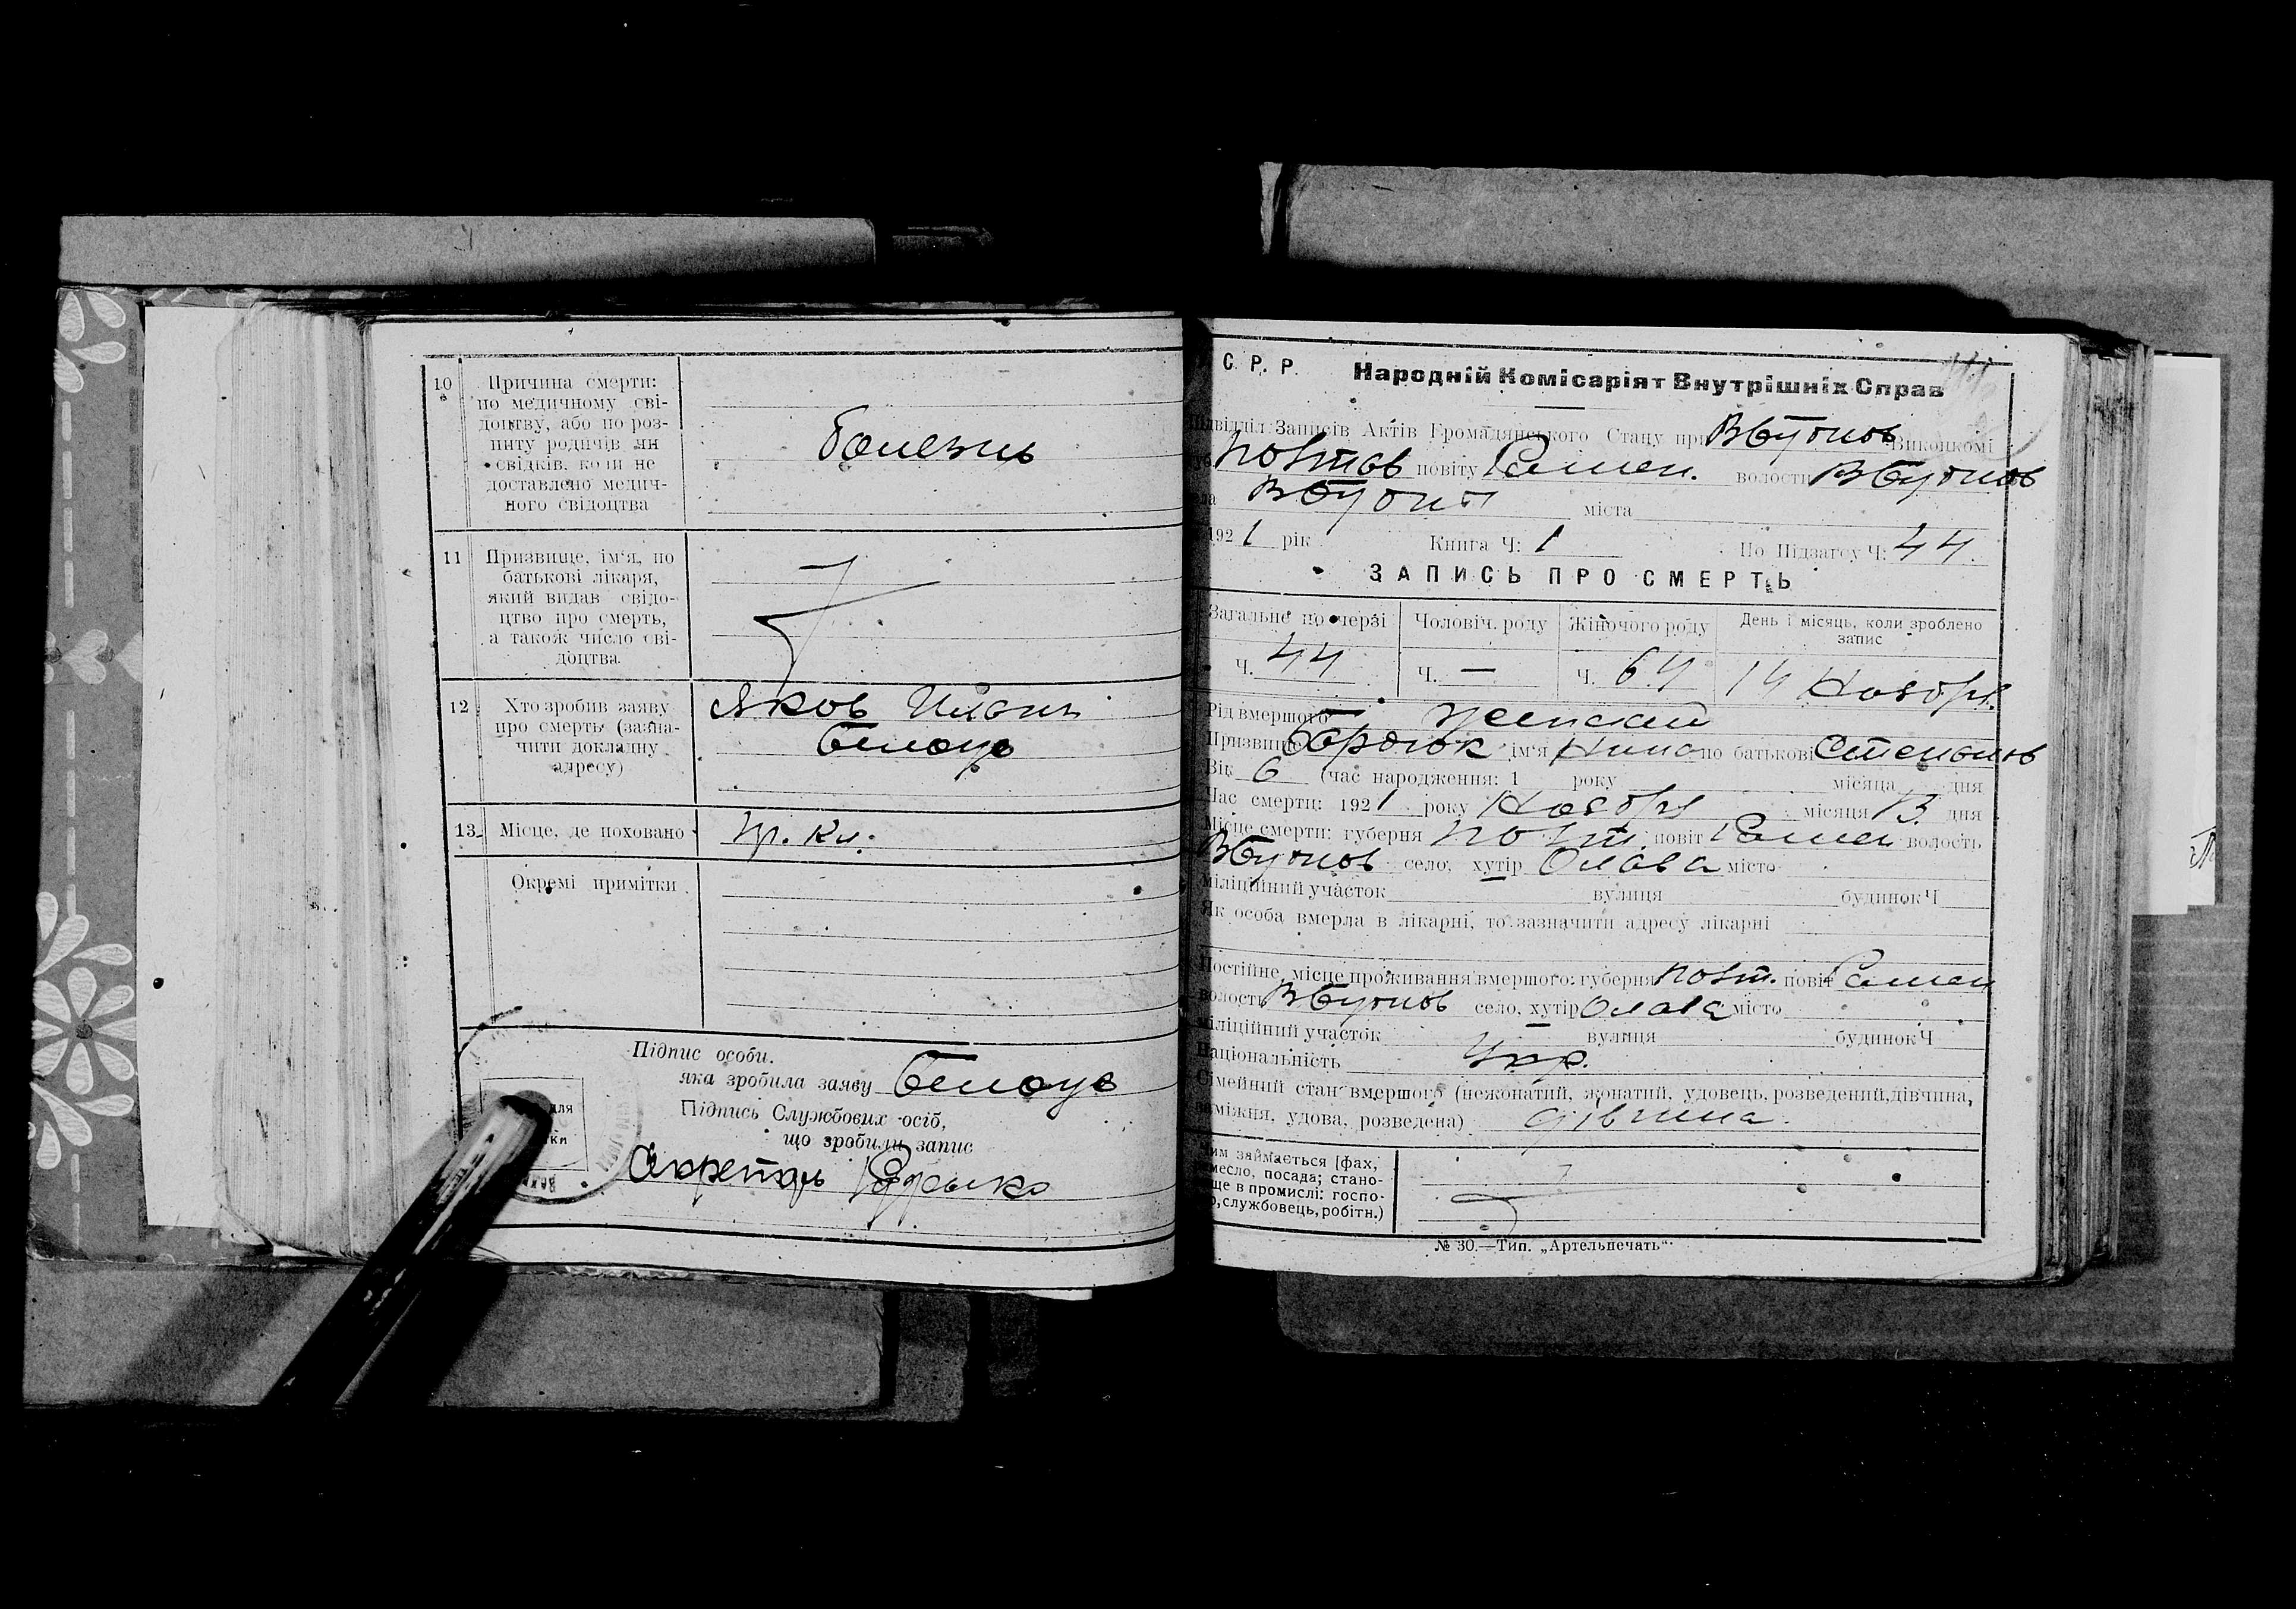 10 Причина смерти:
по медичному сві-
доцтву, або по роз-
питу родичів чи
свідків, коли не
доставлено медич-
ного свідоцтва
болезнь
11 Призвище, ім'я, по
батькові лікаря,
який видав свідо-
цтво про смерть,
а також число сві-
доцтва
12 Хто зробив заяву
про смерть (зазна-
чити докладну
адресу)
Яков
Белоус
13. Місце, де поховано
Окремі примітки
Підпис особи,
яка зробила заяву Белоус
Підпись Службових осіб,
що зробили запис
Секретарь
С. Р. Р. Народній Комісаріят Внутрішніх Справ
Підвідділ Записів Актів Громадянського Стану при Виконкомі
Полтав повіту Ромен. волости
міста
1921 рік Книга Ч: 1 По Підзагсу Ч: 44.
ЗАПИСЬ ПРО СМЕРТЬ
Загальне по черзі Чоловіч. роду Жіночого роду День і місяць, коли зроблено
запис
Ч. 44 Ч. — Ч. 14 Ноября
Рід вмершого женский
Призвище ім'я Нина по батькові Степанов
Вік 6 (час народження: 1 року місяца дня
Час смерти: 1921 року Ноября місяця 13 дня
Місце смерти: губерня Полт. повіт Ромен волость
село, хутір Олава місто
міліційний участок вулиця будинок Ч
Як особа вмерла в лікарні, то зазначити адресу лікарні
Постійне місце проживання вмершого: губерня Полт. повіт Ромен
волость село, хутір Олава місто
міліційний участок вулиця будинок Ч
Національність Укр.
Сімейний стан вмершого (нежонатий, жонатий, удовець, розведений, дівчина,
заміжня, удова, розведена) дівчина.
Чим займається [фах,
ремесло, посада; стано-
вище в промислі: госпо-
, службовець, робітн.)
№ 30.—Тип. „Артельпечать“